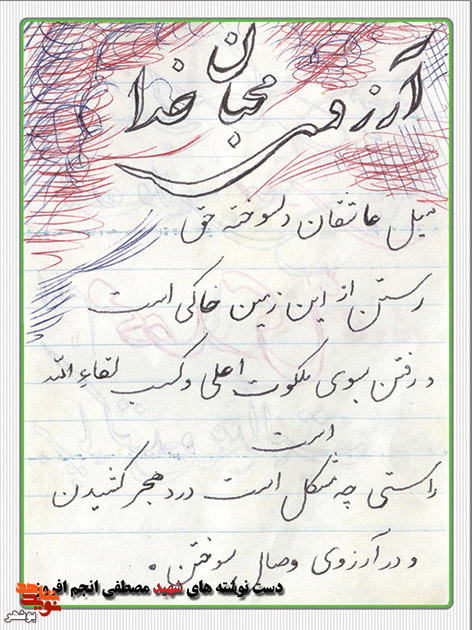 آرزوی محبان خدا
میل عاشقان دلسوخته حق
رستن از این زمین خاکی است
و رفتن بسوی ملکوت اعلی و کسب لقاء الله
است
راستی چه مشکل است درد هجر کشیدن
و در آرزوی وصال سوختن.
دست نوشته های شهید مصطفی انجم افروز
نوید شاهد
بوشهر